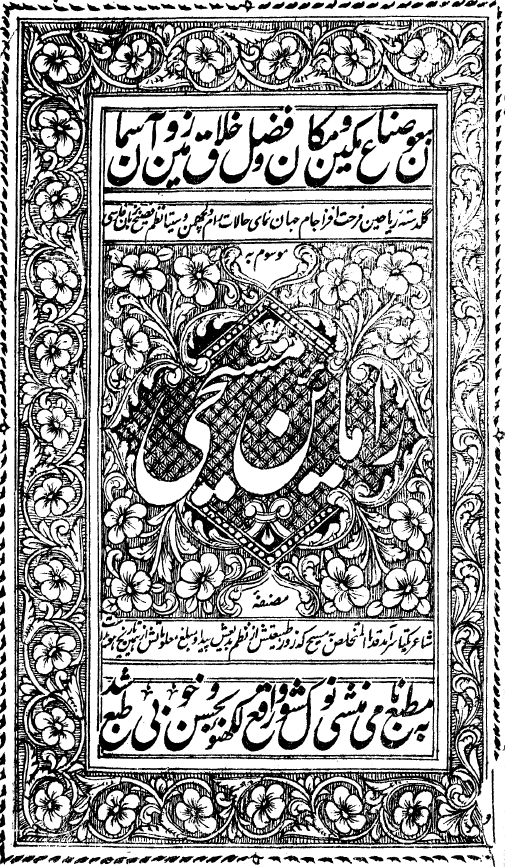 بعون صناع مکین و مکان و فضل خلاق زمین و آسمان
گلدسته ریاحین فرحت افزا جام جهان نمای حالات رام و لچهمن و سیتا نظم فصیح زبان فارسی
موسوم به
رامائن مسیحی
مصنفهٔ
شاعر یکتا المتخلص به مسیح که زور طبیعتش از نظم
به مطبع نامی منشی نولکشور واقع لکهنؤ بحسن و خوبی طبع شد